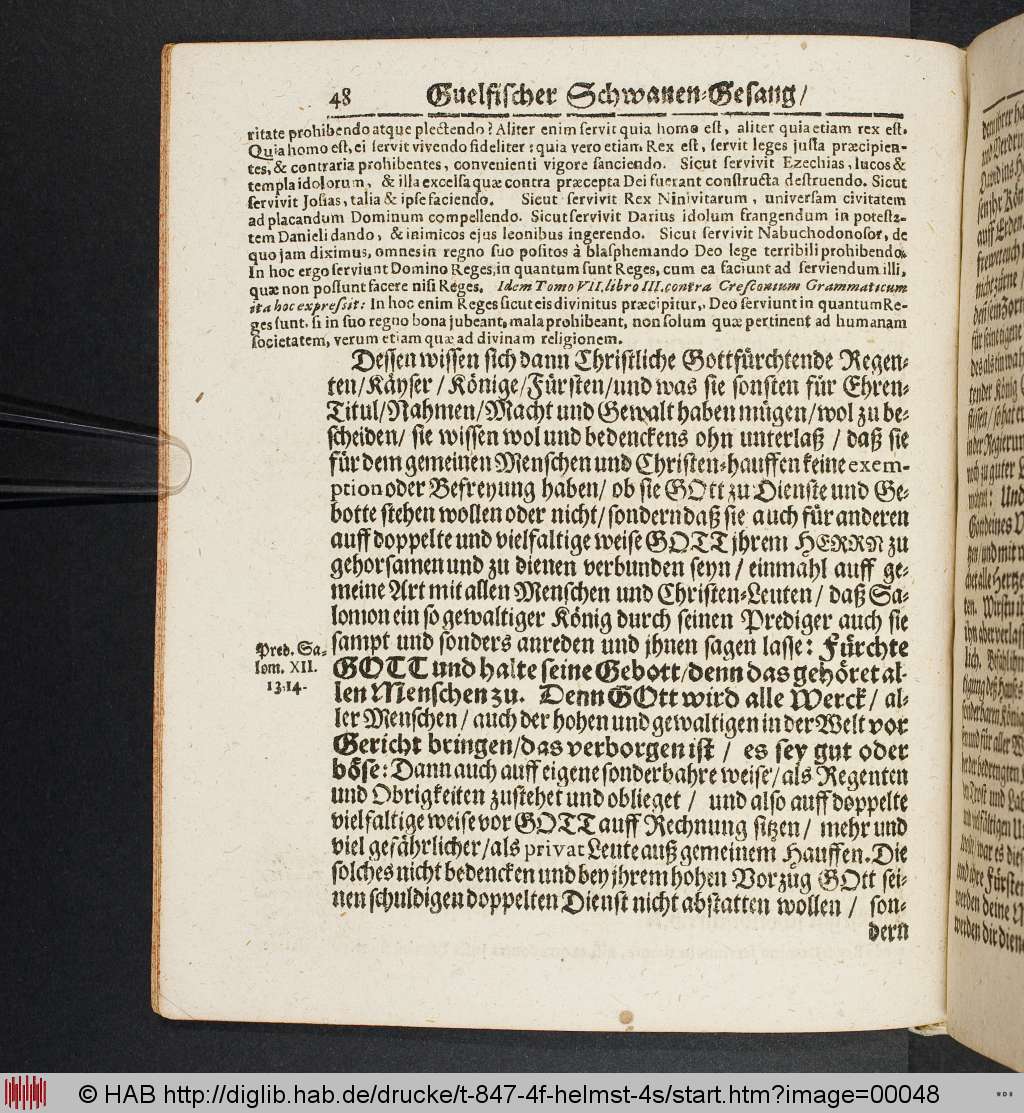 48 Guelfischer Schwanen-Gesang/
ritate prohibendo atque plectendo? Aliter enim servit quia homo est, aliter quia etiam rex est.
Quia homo est, ei servit vivendo fideliter: quia vero etiam Rex est, servit leges justa præcipien-
tes, & contraria prohibentes, convenienti vigore sanciendo. Sicut servivit Ezechias, lucos &
templa idolorum, & illa excelsa quæ contra præcepta Dei fuerant constructa destruendo. Sicut
servivit Josias, talia & ipse faciendo. Sicut servivit Rex Ninivitarum, universam civitatem
ad placandum Dominum compellendo. Sicut servivit Darius idolum frangendum in potesta-
tem Danieli dando, & inimicos ejus leonibus ingerendo. Sicut servivit Nabuchodonosor, de
quo jam diximus, omnes in regno suo positos à blasphemando Deo lege terribili prohibendo.
In hoc ergo serviunt Domino Reges, in quantum sunt Reges, cum ea faciunt ad serviendum illi,
quæ non possunt facere nisi Reges. Idem Tomo VII. libro III. contra Cresconium Grammaticum
ita hoc expressit: In hoc enim Reges sicut eis divinitus præcipitur, Deo serviunt in quantum Re-
ges sunt, si in suo regno bona jubeant, mala prohibeant, non solum quæ pertinent ad humanam
societatem, verum etiam quæ ad divinam religionem.
Dessen wissen sich dann Christliche Gottfürchtende Regen-
ten/Käyser/Könige/Fürsten/und was sie sonsten für Ehren-
Titul/Nahmen/Macht und Gewalt haben mügen/wol zu be-
scheiden/ sie wissen wol und bedenckens ohn unterlaß / daß sie
für dem gemeinen Menschen und Christen-hauffen keine exem-
ption oder Befreyung haben/ ob sie GOtt zu Dienste und Ge-
botte stehen wollen oder nicht/ sondern daß sie auch für anderen
auff doppelte und vielfaltige weise GOTT jhrem HERRN zu
gehorsamen und zu dienen verbunden seyn / einmahl auff ge-
meine Art mit allen Menschen und Christen-Leuten / daß Sa-
lomon ein so gewaltiger König durch seinen Prediger auch sie
sampt und sonders anreden und jhnen sagen lasse: Fürchte
Pred. Sa-
lom. XII.
13.14.
GOTT und halte seine Gebott/denn das gehöret al-
len Menschen zu. Denn GOtt wird alle Werck/ al-
ler Menschen / auch der hohen und gewaltigen in der Welt vor
Gericht bringen/das verborgen ist / es sey gut oder
böse: Dann auch auff eigene sonderbahre weise/ als Regenten
und Obrigkeiten zustehet und oblieget / und also auff doppelte
vielfaltige weise vor GOTT auff Rechnung sitzen/ mehr und
viel gefährlicher/als privat Leute auß gemeinem Hauffen. Die
solches nicht bedencken und bey jhrem hohen Vorzug GOtt sei-
nen schuldigen doppelten Dienst nicht abstatten wollen / son-
dern
© HAB http://diglib.hab.de/drucke/t-847-4f-helmst-4s/start.htm?image=00048